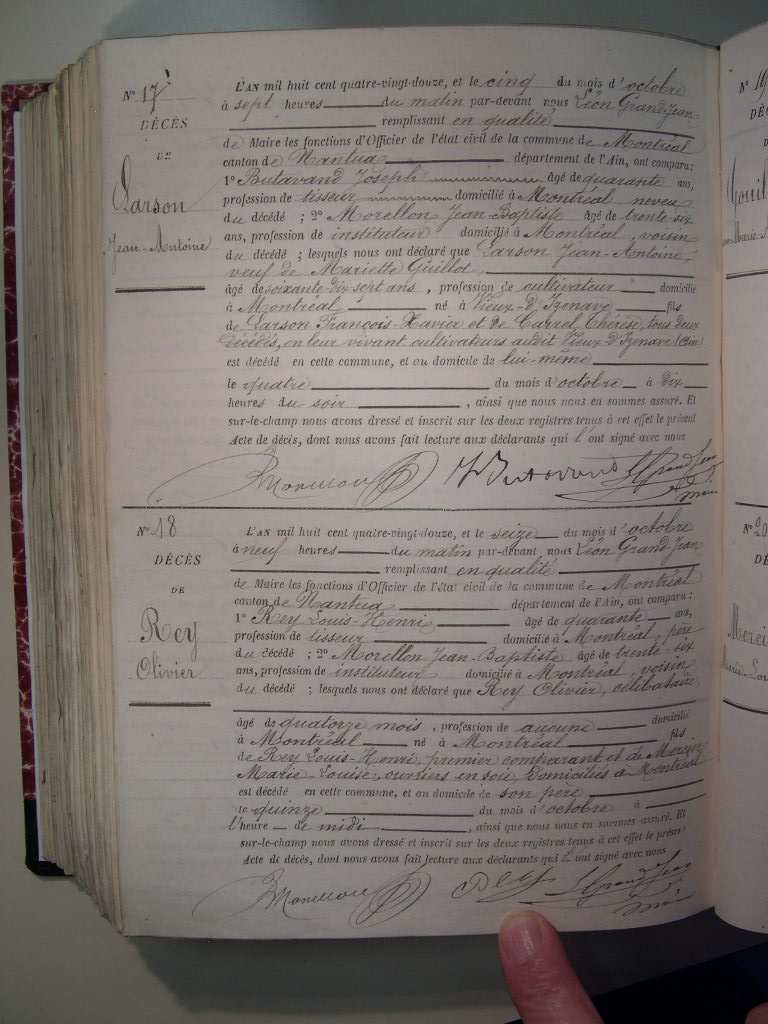 N° 17
DÉCÈS
DE
Carson
Jean-Antoine
L'AN mil huit cent quatre-vingt-douze, et le cinq du mois d'octobre
à sept heures du matin par-devant nous Léon Grand-Jean
remplissant en qualité
de Maire les fonctions d'Officier de l'état civil de la commune de Montréal
canton de Nantua département de l'Ain, ont comparu:
1° Butavand Joseph âgé de quarante ans,
profession de tisseur domicilié à Montréal neveu
du décédé ; 2° Morellon Jean-Baptiste âgé de trente six
ans, profession de instituteur domicilié à Montréal, voisin
du décédé ; lesquels nous ont déclaré que Carson Jean-Antoine,
veuf de Mariette Guillot,
âgé de soixante-dix sept ans, profession de cultivateur domicilié
à Montréal né à Vieux-d'Izenave fils
de Carson François-Xavier et de Carrel Thérèse, tous deux
décédés, en leur vivant cultivateurs audit Vieux d'Izenave (Ain)
est décédé en cette commune, et au domicile de lui-même
le quatre du mois d'octobre à dix
heures du soir, ainsi que nous nous en sommes assuré. Et
sur-le-champ nous avons dressé et inscrit sur les deux registres tenus à cet effet le présent
Acte de décès, dont nous avons fait lecture aux déclarants qui l'ont signé avec nous
Morellon Butavand L Grand Jean
maire
N° 18
DÉCÈS
DE
Rey
Olivier
L'AN mil huit cent quatre-vingt-douze, et le seize du mois d'octobre
à neuf heures du matin par-devant nous Léon Grand-Jean
remplissant en qualité
de Maire les fonctions d'Officier de l'état civil de la commune de Montréal
canton de Nantua département de l'Ain, ont comparu:
1° Rey Louis-Henri âgé de quarante ans,
profession de tisseur domicilié à Montréal, père
du décédé ; 2° Morellon Jean-Baptiste âgé de trente-six
ans, profession de instituteur domicilié à Montréal, voisin
du décédé ; lesquels nous ont déclaré que Rey Olivier, célibataire,
âgé de quatorze mois, profession de aucune domicilié
à Montréal né à Montréal fils
de Rey Louis-Henri, premier comparant et de Mercier
Marie Louise, ouvriers en soie, domiciliés à Montréal
est décédé en cette commune, et au domicile de son père
le quinze du mois d'octobre à
l'heure de midi, ainsi que nous nous en sommes assuré. Et
sur-le-champ nous avons dressé et inscrit sur les deux registres tenus à cet effet le présent
Acte de décès, dont nous avons fait lecture aux déclarants qui l'ont signé avec nous
Morellon Rey L Grand Jean
maire